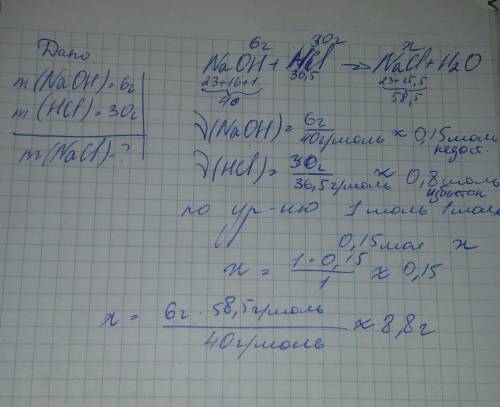 Дано:
m(NaOH)=6г
m(HCl)=30г
m(NaCl)-?
6г 30г x
NaOH + HCl → NaCl + H2O
23+16+1 36,5 23+35,5
40 58,5
ν(NaOH)= 6г / 40г/моль ≈ 0,15моль
недост.
ν(HCl)= 30г / 36,5г/моль ≈ 0,8моль
избыток
по ур-нию 1 моль 1 моль
0,15мол x
x = 1·0,15 / 1 ≈ 0,15
x = 6г · 58,5г/моль / 40г/моль ≈ 8,8г